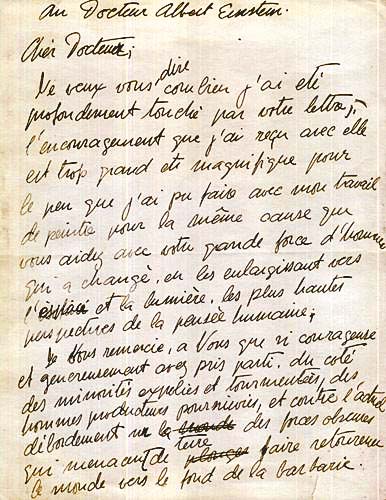 Au Docteur Albert Einstein.
Cher Docteur,
Je veux vous dire combien j'ai été
profondement touché par votre lettre,
l'encouragement que j'ai reçu avec elle
est trop grand et magnifique pour
le peu que j'ai pu faire avec mon travail
de peintre pour la même cause que
vous aidez avec votre grande force d'homme
qui a changé, en les enlargissant vers
l' et la lumière, les plus hautes
perspectives de la pensée humaine;
Vous remercie, a Vous que si courageuse
et genereusement avez pris parti, du coté
des minorités et tourmentées, des
hommes producteurs poursuivies, et contre l'actuel
débordement sur la des forces obscures
qui menacent de faire retourner
le monde vers le fond de la barbarie.